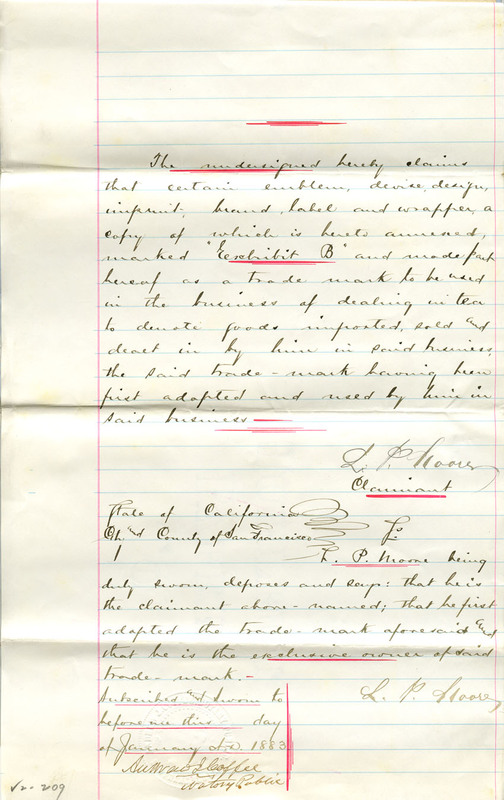 The undersigned hereby claims
that certain emblem, devise, design,
imprint, brand, label and wrapper, a
copy of which is hereto annexed,
marked "Exhibit B" and made part
hereof as a trade mark to be used
in the business of dealing in tea
to denote goods imported, sold and
dealt in by him in said business,
the said trade-mark having been
first adopted and used by him in
said business
L. P. Moore
Claimant
State of California
City and County of San Francisco ss
L. P. Moore being
duly sworn, deposes and says: that he is
the claimant above-named; that he first
adopted the trade-mark aforesaid and
that he is the exclusive owner of said
trade-mark.-
L. P. Moore
Subscribed and sworn to
before me this day
of January A.D. 1883
Notary Public
209